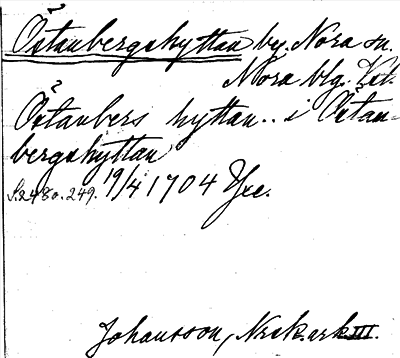 Östanbergshyttan by. Nora sn.
Nora blg. Vstl.
Östanbers hyttan .. i Östan-
bergshyttan
S. 248 o. 249. 19/4 1704 Yxe.
Johansson, Norabark III.